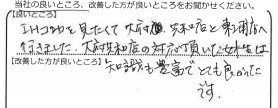 当社の良いところ、改善した方が良いところをお聞かせください。
【良いところ】
IHコンロを見たくて大府、共和店と東浦店へ
行きました。大府共和店の対応頂いた女性は
【改善した方が良いところ】知識も豊富でとても良かった
です。